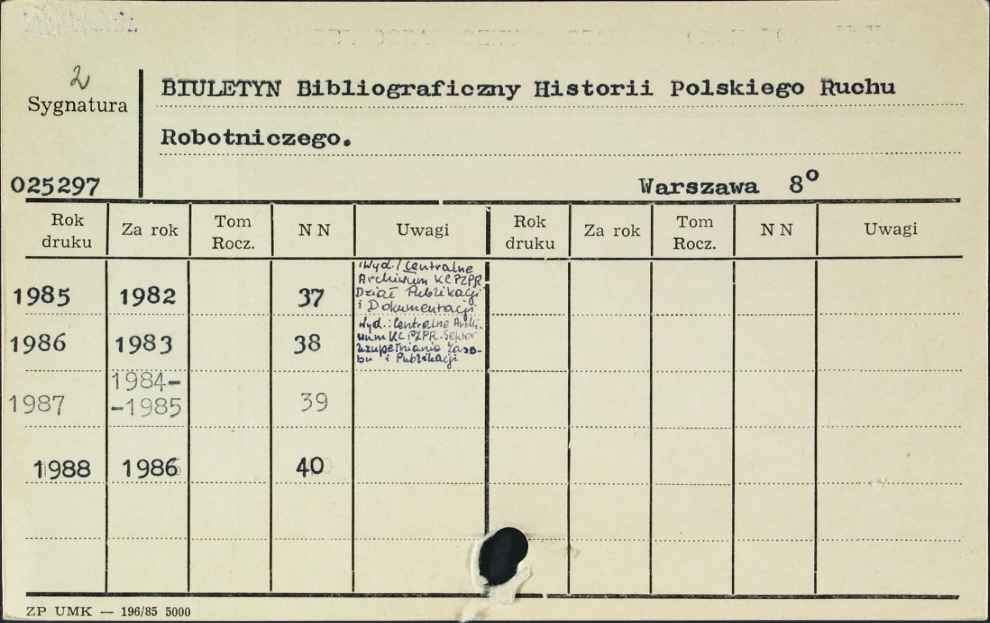 2
BIULETYN Bibliograficzny Historii Polskiego Ruchu
Sygnatura
Robotniczego.
025297
Warszawa 8°
Rok druku Za rok Tom Rocz. N N Uwagi Rok druku Za rok Tom Rocz. N N Uwagi
Wyd./Centralne
Archiwum KC PZPR
Dział Publikacji
i Dokumentacji
1985 1982 37
Wyd.: Centralne Archi-
wum KC PZPR. Sektor
Uzupełniania Zaso-
bu i Publikacji
1986 1983 38
1984-
1987 -1985 39
1988 1986 40
ZP UMK — 196/85 5000